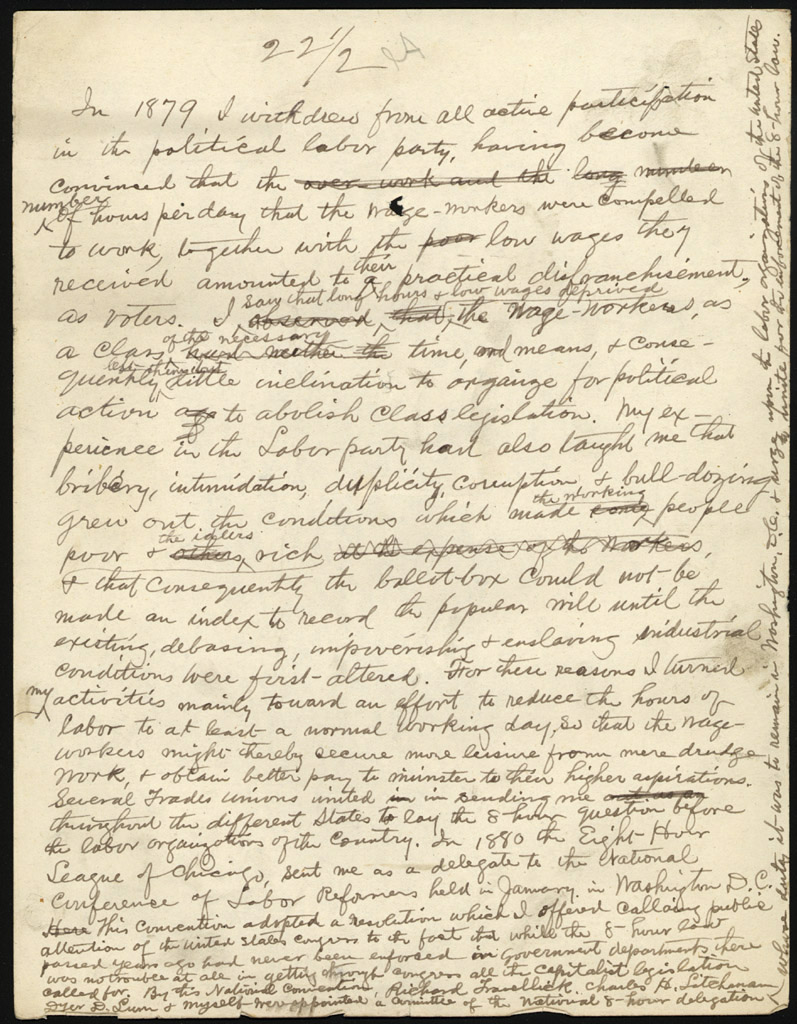 22 1/2
In 1879 I withdrew from all active participation
in the political labor party, having become
convinced that the over-work and the long number
number
of hours per day that the wage-workers were compelled
to work, together with the poor low wages they
received amounted to their a practical disfranchisement
as voters. I observed, that, say that long hours & low wages deprived the wage-workers, as
a class of the necessary time, and means, & conse-
quently left them but little inclination to organize for political
action to abolish class legislation. My ex-
perience in the Labor party had also taught me that
bribery, intimidation, duplicity, corruption, & bull-dozing
grew out the conditions which made the working people
poor & the idlers others, rich at the expense of the workers,
& that consequently the ballot-box could not be
made an index to record the popular will until the
existing, debasing, impoverishing & enslaving industrial
conditions were first altered. For these reasons I turned
my activities mainly toward an effort to reduce the hours of
labor to at least a normal working day, so that the wage-
workers might thereby secure more leisure from mere drudge
work, & obtain better pay to minister to their higher aspirations.
Several Trades unions united in in sending me
throughout the different States to lay the 8-hour question before
the labor organizations of the country. In 1880 the Eight-Hour
League of Chicago, sent me as a delegate to the National
Conference of Labor Reformers held in January in Washington D.C.
Here This convention adopted a resolution which I offered calling public
attention of the United States congress to the fact that while the 8-hour law
passed years ago had never been enforced in Government departments there
was no trouble at all in getting through congress all the capitalist legislation
called for. By this National Convention, Richard Trevellick, Charles H. Litchman
Dyer D. Lum & myself were appointed a committee of the National 8-hour delegation
whose duty it was to remain in Washington, D.C. & urge upon the labor organizations of the United States
to unite for the enforcement of the 8-hour law.